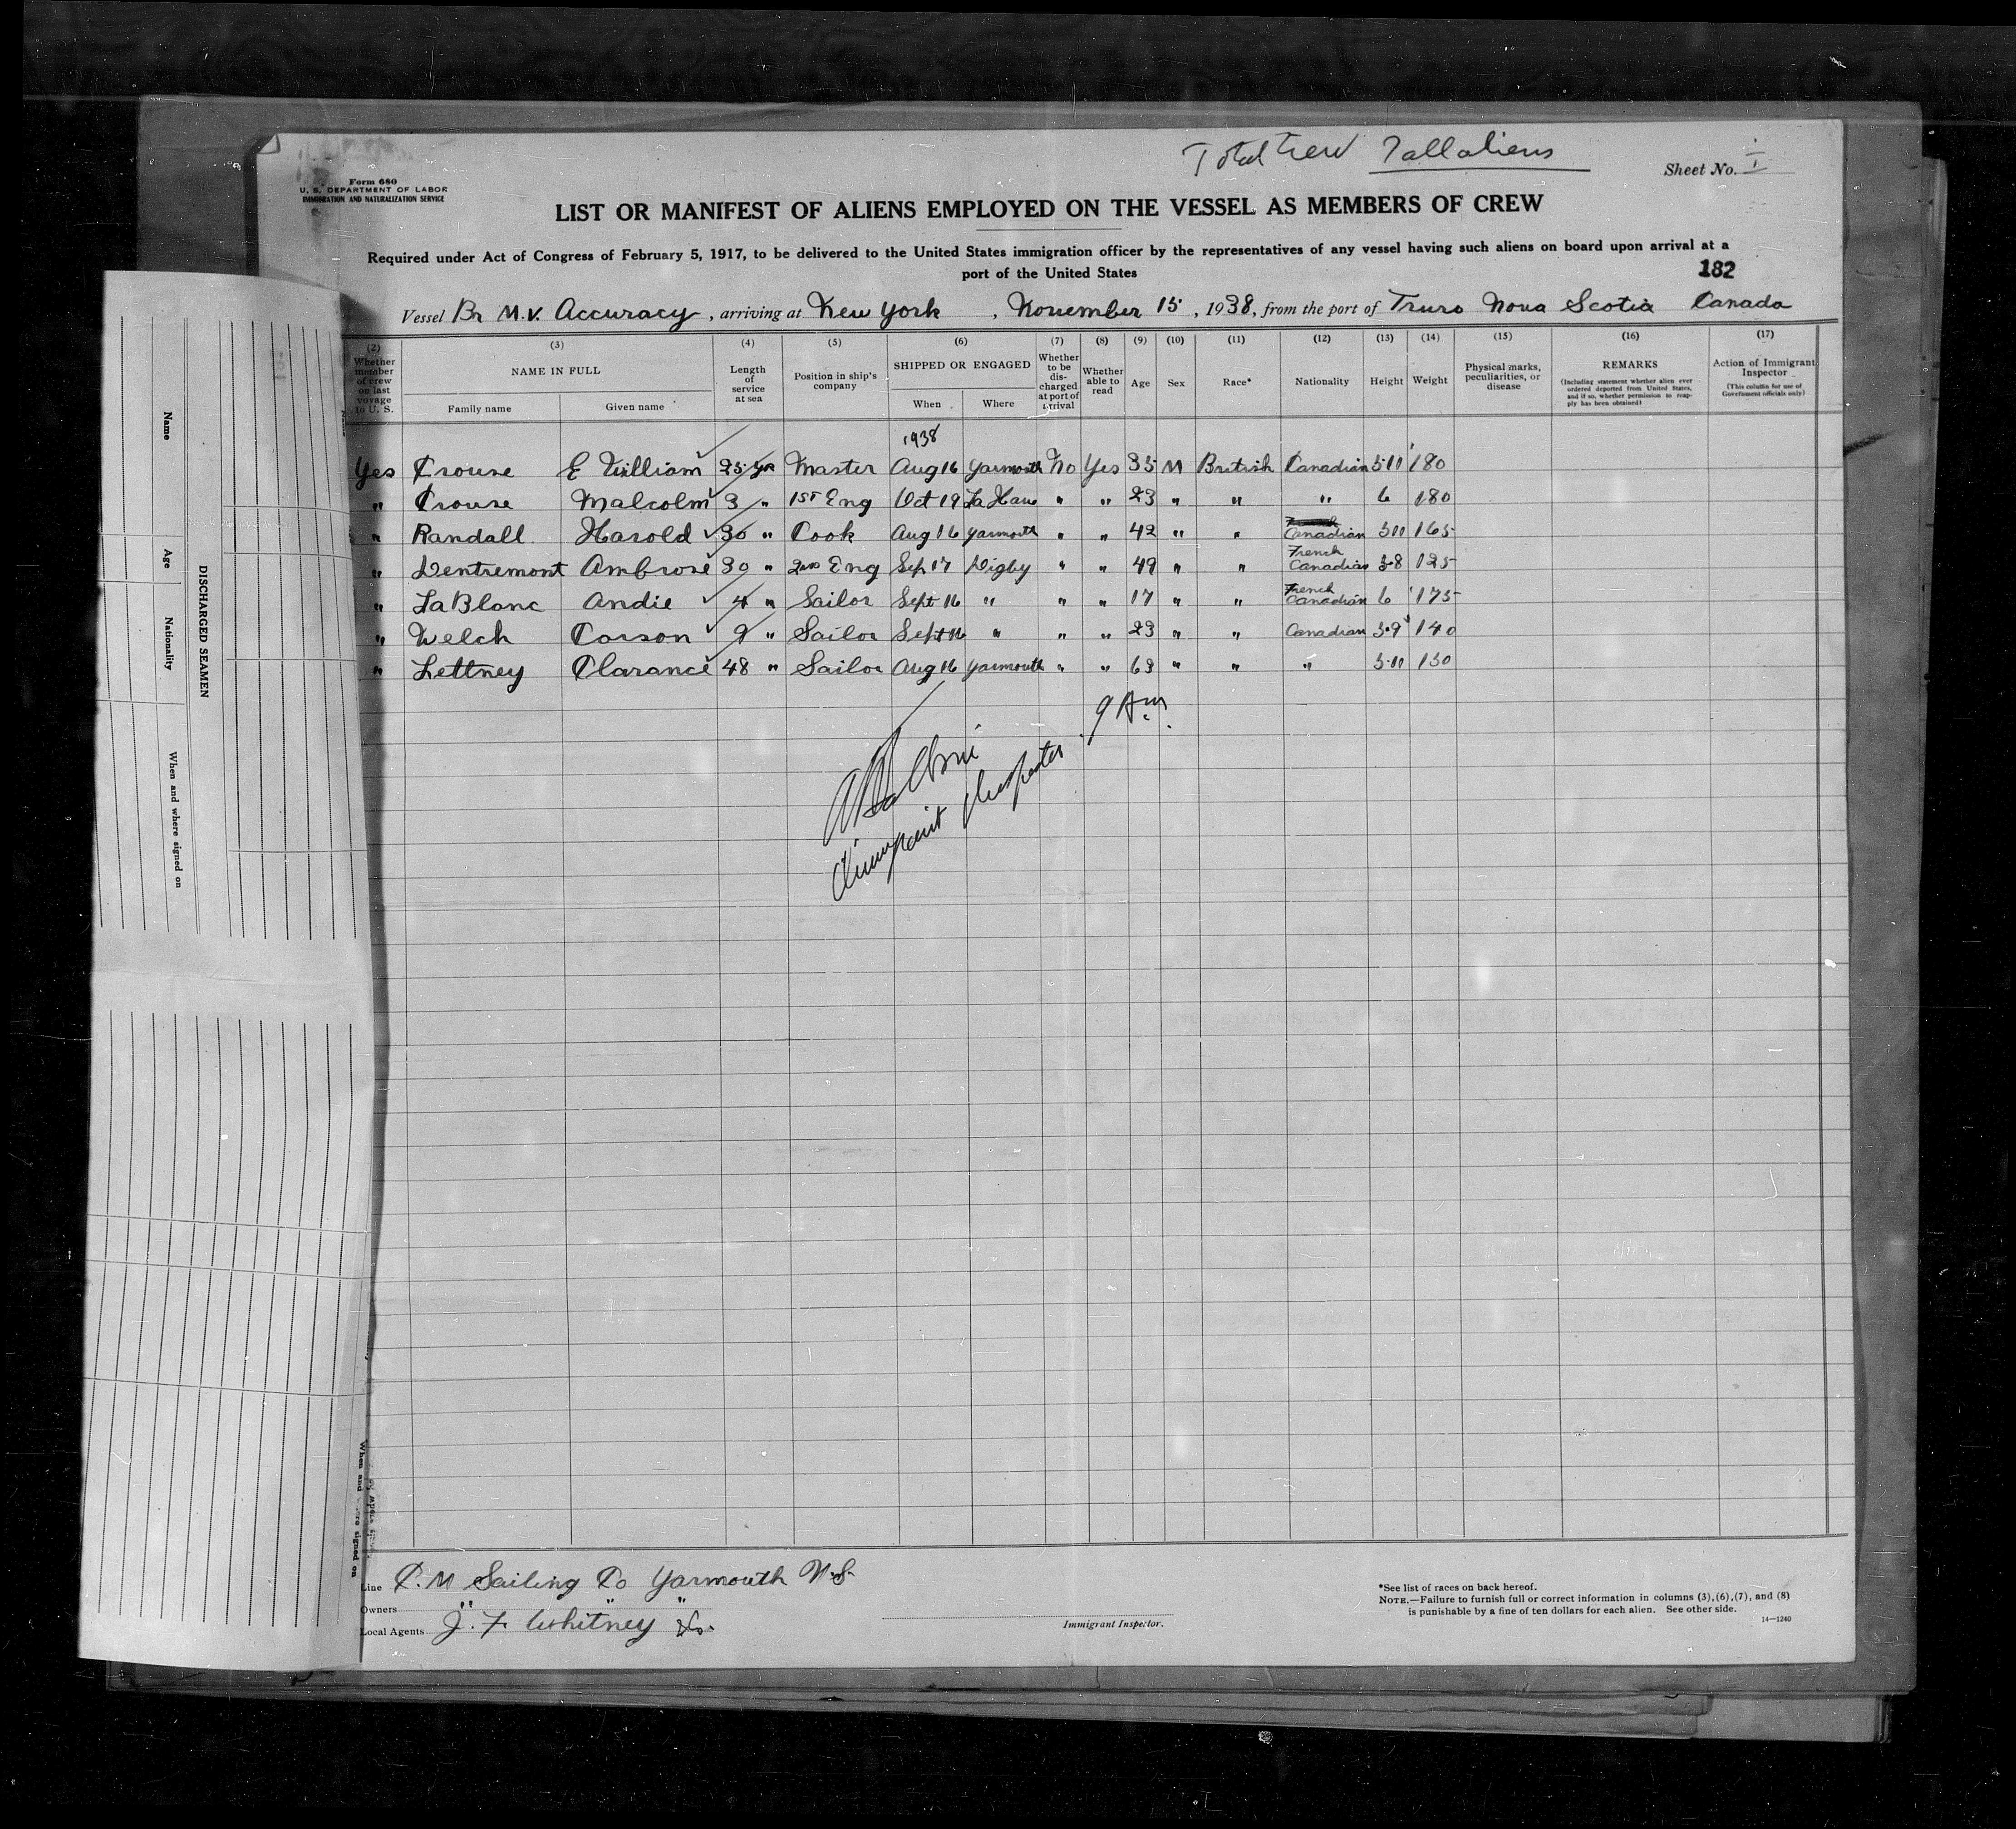 Total Crew 7 all aliens
Sheet No. 1
Form 680
U. S. DEPARTMENT OF LABOR
IMMIGRATION AND NATURALIZATION SERVICE
LIST OR MANIFEST OF ALIENS EMPLOYED ON THE VESSEL AS MEMBERS OF CREW
Required under Act of Congress of February 5, 1917, to be delivered to the United States immigration officer by the representatives of any vessel having such aliens on board upon arrival at a
port of the United States
182
Vessel Br M.V. Accuracy, arriving at New York, November 15, 1938, from the port of Truro Nova Scotia Canada
(2) (3) (4) (5) (6) (7) (8) (9) (10) (11) (12) (13) (14) (15) (16) (17)
Whether member of crew on last voyage to U. S.
NAME IN FULL
Family name Given name
Length of service at sea
Position in ship's company
SHIPPED OR ENGAGED
When Where
Whether to be discharged at port of arrival
Whether able to read
Age
Sex
Race*
Nationality
Height
Weight
Physical marks, peculiarities, or disease
REMARKS
(Including statement whether alien ever ordered deported from United States, and if so, whether permission to reapply has been obtained)
Action of Immigrant Inspector
(This column for use of Government officials only)
1938
Yes Crouse E William 25 yrs Master Aug 16 Yarmouth No Yes 35 M British Canadian 5·11 180
" Crouse Malcolm 3 " 1st Eng Oct 19 La Have " " 23 " " " 6 180
" Randall Harold 30 " Cook Aug 16 Yarmouth " " 42 " " Canadian 5 11 165
" Dentremont Ambrose 30 " 2nd Eng Sep 17 Digby " " 49 " " French Canadian 5·8 125
" LaBlanc Andie 4 " Sailor Sept 16 " " " 17 " " French Canadian 6 175
" Welch Corson 9 " Sailor Sept 16 " " " 23 " " Canadian 5·9 140
" Lettney Clarance 48 " Sailor Aug 16 Yarmouth " " 63 " " " 5·11 130
9 Am
Inspector
Name
Age
Nationality
When and where signed on
DISCHARGED SEAMEN
Line C. M Sailing Co Yarmouth N.S.
Owners " " "
Local Agents J. F. Whitney Co.
Immigrant Inspector.
*See list of races on back hereof.
NOTE.—Failure to furnish full or correct information in columns (3),(6),(7), and (8)
is punishable by a fine of ten dollars for each alien. See other side.
14—1240